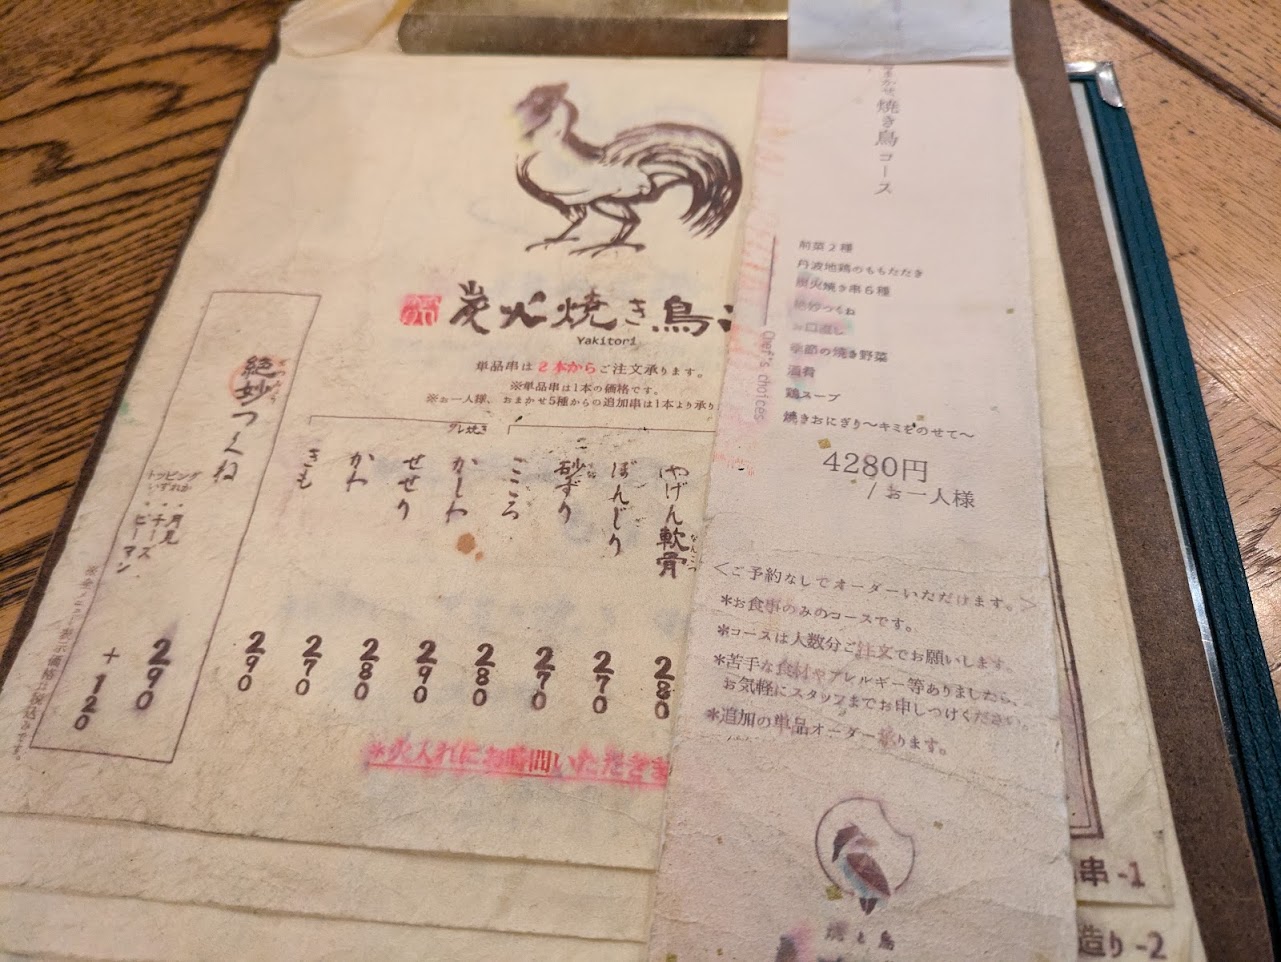 炭火焼き鳥
Yakitori
単品串は2本からご注文承ります。
※単品串は1本の価格です。
※お一人様、おまかせ5種からの追加串は1本より承り
やげん軟骨 280
なんこつ
ぼんじり 270
砂ずり 270
こころ 280
タレ焼き
かしわ 290
せせり 280
かわ 270
きも 290
絶妙つくね 290
トッピング
いずれか
・月見
・チーズ
・ピーマン
+120
※全メニュー表示価格は税込みです。
※火入れにお時間いただきま
まかせ焼き鳥コース
Chef's choices
前菜2種
丹波地鶏のももたたき
炭火焼き串5種
絶妙つくね
お口直し
季節の焼き野菜
酒肴
鶏スープ
焼きおにぎり〜キミをのせて〜
4280円
/お一人様
<ご予約なしでオーダーいただけます。>
*お食事のみのコースです。
*コースは人数分ご注文でお願いします。
*苦手な食材やアレルギー等ありましたら、
お気軽にスタッフまでお申しつけください。
*追加の単品オーダー承ります。
串-1
造り-2